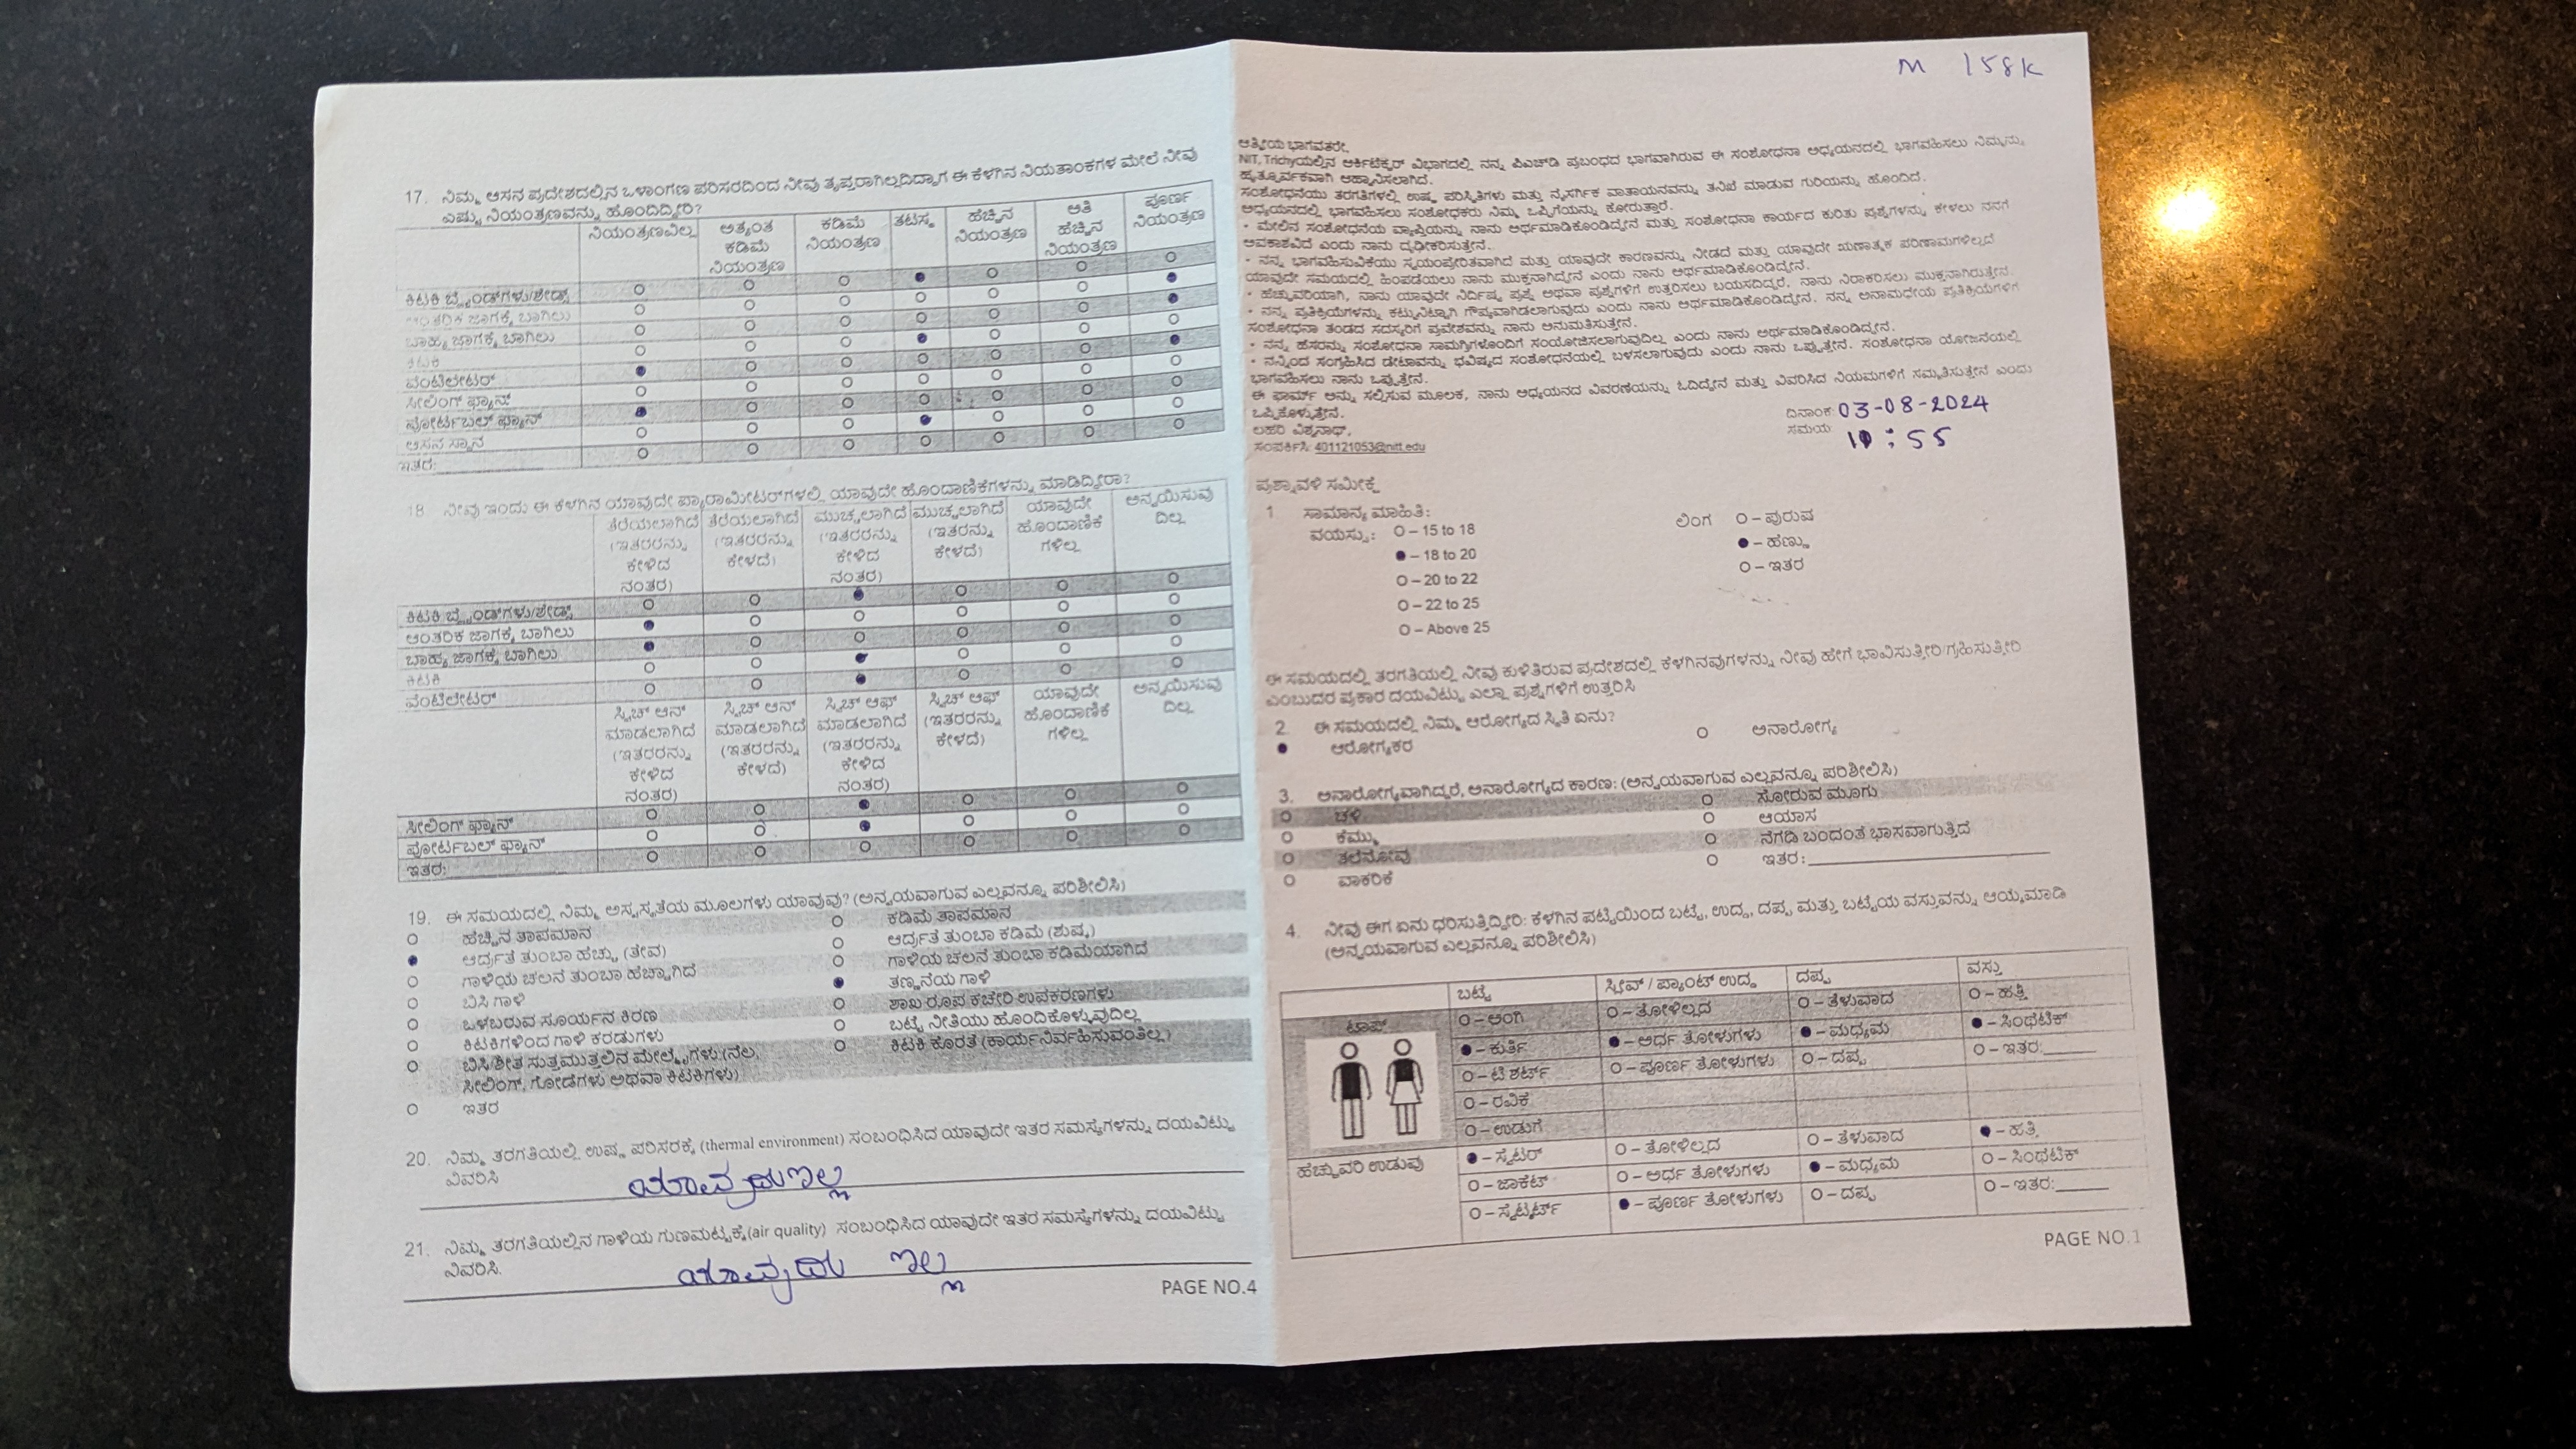 17. ನಿಮ್ಮ ಆಸನ ಪ್ರದೇಶದಲ್ಲಿನ ಒಳಾಂಗಣ ಪರಿಸರದಿಂದ ನೀವು ತೃಪ್ತರಾಗಿಲ್ಲದಿದ್ದಾಗ ಈ ಕೆಳಗಿನ ನಿಯತಾಂಕಗಳ ಮೇಲೆ ನೀವು
ಎಷ್ಟು ನಿಯಂತ್ರಣವನ್ನು ಹೊಂದಿದ್ದೀರಿ?
ನಿಯಂತ್ರಣವಿಲ್ಲ ಅತ್ಯಂತ ಕಡಿಮೆ ನಿಯಂತ್ರಣ ಕಡಿಮೆ ನಿಯಂತ್ರಣ ತಟಸ್ಥ ಹೆಚ್ಚಿನ ನಿಯಂತ್ರಣ ಅತಿ ಹೆಚ್ಚಿನ ನಿಯಂತ್ರಣ ಪೂರ್ಣ ನಿಯಂತ್ರಣ
ಕಿಟಕಿ ಬ್ಲೈಂಡ್‌ಗಳು/ಶೇಡ್ಸ್
ಆಂತರಿಕ ಜಾಗಕ್ಕೆ ಬಾಗಿಲು
ಬಾಹ್ಯ ಜಾಗಕ್ಕೆ ಬಾಗಿಲು
ಕಿಟಕಿ
ವೆಂಟಿಲೇಟರ್
ಸೀಲಿಂಗ್ ಫ್ಯಾನ್
ಪೋರ್ಟಬಲ್ ಫ್ಯಾನ್
ಆಸನ ಸ್ಥಾನ
ಇತರ:
18. ನೀವು ಇಂದು ಈ ಕೆಳಗಿನ ಯಾವುದೇ ಪ್ಯಾರಾಮೀಟರ್‌ಗಳಲ್ಲಿ ಯಾವುದೇ ಹೊಂದಾಣಿಕೆಗಳನ್ನು ಮಾಡಿದ್ದೀರಾ?
ತೆರೆಯಲಾಗಿದೆ (ಇತರರನ್ನು ಕೇಳಿದ ನಂತರ) ತೆರೆಯಲಾಗಿದೆ (ಇತರರನ್ನು ಕೇಳದೆ) ಮುಚ್ಚಲಾಗಿದೆ (ಇತರರನ್ನು ಕೇಳಿದ ನಂತರ) ಮುಚ್ಚಲಾಗಿದೆ (ಇತರರನ್ನು ಕೇಳದೆ) ಯಾವುದೇ ಹೊಂದಾಣಿಕೆ ಗಳಿಲ್ಲ ಅನ್ವಯಿಸುವು ದಿಲ್ಲ
ಕಿಟಕಿ ಬ್ಲೈಂಡ್‌ಗಳು/ಶೇಡ್ಸ್
ಆಂತರಿಕ ಜಾಗಕ್ಕೆ ಬಾಗಿಲು
ಬಾಹ್ಯ ಜಾಗಕ್ಕೆ ಬಾಗಿಲು
ಕಿಟಕಿ
ವೆಂಟಿಲೇಟರ್
ಸ್ವಿಚ್ ಆನ್ ಮಾಡಲಾಗಿದೆ (ಇತರರನ್ನು ಕೇಳಿದ ನಂತರ) ಸ್ವಿಚ್ ಆನ್ ಮಾಡಲಾಗಿದೆ (ಇತರರನ್ನು ಕೇಳದೆ) ಸ್ವಿಚ್ ಆಫ್ ಮಾಡಲಾಗಿದೆ (ಇತರರನ್ನು ಕೇಳಿದ ನಂತರ) ಸ್ವಿಚ್ ಆಫ್ (ಇತರರನ್ನು ಕೇಳದೆ) ಯಾವುದೇ ಹೊಂದಾಣಿಕೆ ಗಳಿಲ್ಲ ಅನ್ವಯಿಸುವು ದಿಲ್ಲ
ಸೀಲಿಂಗ್ ಫ್ಯಾನ್
ಪೋರ್ಟಬಲ್ ಫ್ಯಾನ್
ಇತರ:
19. ಈ ಸಮಯದಲ್ಲಿ ನಿಮ್ಮ ಅಸ್ವಸ್ಥತೆಯ ಮೂಲಗಳು ಯಾವುವು? (ಅನ್ವಯವಾಗುವ ಎಲ್ಲವನ್ನೂ ಪರಿಶೀಲಿಸಿ)
ಹೆಚ್ಚಿನ ತಾಪಮಾನ ಕಡಿಮೆ ತಾಪಮಾನ
ಆರ್ದ್ರತೆ ತುಂಬಾ ಹೆಚ್ಚು (ತೇವ) ಆರ್ದ್ರತೆ ತುಂಬಾ ಕಡಿಮೆ (ಶುಷ್ಕ)
ಗಾಳಿಯ ಚಲನೆ ತುಂಬಾ ಹೆಚ್ಚಾಗಿದೆ ಗಾಳಿಯ ಚಲನೆ ತುಂಬಾ ಕಡಿಮೆಯಾಗಿದೆ
ಬಿಸಿ ಗಾಳಿ ತಣ್ಣನೆಯ ಗಾಳಿ
ಒಳಬರುವ ಸೂರ್ಯನ ಕಿರಣ ಶಾಖ ರೂಪ ಕಚೇರಿ ಉಪಕರಣಗಳು
ಕಿಟಕಿಗಳಿಂದ ಗಾಳಿ ಕರಡುಗಳು ಬಟ್ಟೆ ನೀತಿಯು ಹೊಂದಿಕೊಳ್ಳುವುದಿಲ್ಲ
ಬಿಸಿ/ಶೀತ ಸುತ್ತಮುತ್ತಲಿನ ಮೇಲ್ಮೈಗಳು (ನೆಲ, ಕಿಟಕಿ ಕೊರತೆ (ಕಾರ್ಯನಿರ್ವಹಿಸುವಂತಿಲ್ಲ)
ಸೀಲಿಂಗ್, ಗೋಡೆಗಳು ಅಥವಾ ಕಿಟಕಿಗಳು)
ಇತರ
20. ನಿಮ್ಮ ತರಗತಿಯಲ್ಲಿ ಉಷ್ಣ ಪರಿಸರಕ್ಕೆ (thermal environment) ಸಂಬಂಧಿಸಿದ ಯಾವುದೇ ಇತರ ಸಮಸ್ಯೆಗಳನ್ನು ದಯವಿಟ್ಟು
ವಿವರಿಸಿ ಯಾವುದು ಇಲ್ಲ
21. ನಿಮ್ಮ ತರಗತಿಯಲ್ಲಿನ ಗಾಳಿಯ ಗುಣಮಟ್ಟಕ್ಕೆ(air quality) ಸಂಬಂಧಿಸಿದ ಯಾವುದೇ ಇತರ ಸಮಸ್ಯೆಗಳನ್ನು ದಯವಿಟ್ಟು
ವಿವರಿಸಿ. ಯಾವುದು ಇಲ್ಲ
PAGE NO.4
M 158K
ಆತ್ಮೀಯ ಭಾಗವತರೇ,
NIT, Trichyಯಲ್ಲಿನ ಆರ್ಕಿಟೆಕ್ಚರ್ ವಿಭಾಗದಲ್ಲಿ ನನ್ನ ಪಿಎಚ್‌ಡಿ ಪ್ರಬಂಧದ ಭಾಗವಾಗಿರುವ ಈ ಸಂಶೋಧನಾ ಅಧ್ಯಯನದಲ್ಲಿ ಭಾಗವಹಿಸಲು ನಿಮ್ಮನ್ನು
ಹೃತ್ಪೂರ್ವಕವಾಗಿ ಆಹ್ವಾನಿಸಲಾಗಿದೆ.
ಸಂಶೋಧನೆಯು ತರಗತಿಗಳಲ್ಲಿ ಉಷ್ಣ ಪರಿಸ್ಥಿತಿಗಳು ಮತ್ತು ನೈಸರ್ಗಿಕ ವಾತಾಯನವನ್ನು ತನಿಖೆ ಮಾಡುವ ಗುರಿಯನ್ನು ಹೊಂದಿದೆ.
ಅಧ್ಯಯನದಲ್ಲಿ ಭಾಗವಹಿಸಲು ಸಂಶೋಧಕರು ನಿಮ್ಮ ಒಪ್ಪಿಗೆಯನ್ನು ಕೋರುತ್ತಾರೆ.
• ಮೇಲಿನ ಸಂಶೋಧನೆಯ ವ್ಯಾಪ್ತಿಯನ್ನು ನಾನು ಅರ್ಥಮಾಡಿಕೊಂಡಿದ್ದೇನೆ ಮತ್ತು ಸಂಶೋಧನಾ ಕಾರ್ಯದ ಕುರಿತು ಪ್ರಶ್ನೆಗಳನ್ನು ಕೇಳಲು ನನಗೆ
ಅವಕಾಶವಿದೆ ಎಂದು ನಾನು ದೃಢೀಕರಿಸುತ್ತೇನೆ.
• ನನ್ನ ಭಾಗವಹಿಸುವಿಕೆಯು ಸ್ವಯಂಪ್ರೇರಿತವಾಗಿದೆ ಮತ್ತು ಯಾವುದೇ ಕಾರಣವನ್ನು ನೀಡದೆ ಮತ್ತು ಯಾವುದೇ ಋಣಾತ್ಮಕ ಪರಿಣಾಮಗಳಿಲ್ಲದೆ
ಯಾವುದೇ ಸಮಯದಲ್ಲಿ ಹಿಂಪಡೆಯಲು ನಾನು ಮುಕ್ತನಾಗಿದ್ದೇನೆ ಎಂದು ನಾನು ಅರ್ಥಮಾಡಿಕೊಂಡಿದ್ದೇನೆ.
• ಹೆಚ್ಚುವರಿಯಾಗಿ, ನಾನು ಯಾವುದೇ ನಿರ್ದಿಷ್ಟ ಪ್ರಶ್ನೆ ಅಥವಾ ಪ್ರಶ್ನೆಗಳಿಗೆ ಉತ್ತರಿಸಲು ಬಯಸದಿದ್ದರೆ, ನಾನು ನಿರಾಕರಿಸಲು ಮುಕ್ತನಾಗಿರುತ್ತೇನೆ.
• ನನ್ನ ಪ್ರತಿಕ್ರಿಯೆಗಳನ್ನು ಕಟ್ಟುನಿಟ್ಟಾಗಿ ಗೌಪ್ಯವಾಗಿಡಲಾಗುವುದು ಎಂದು ನಾನು ಅರ್ಥಮಾಡಿಕೊಂಡಿದ್ದೇನೆ. ನನ್ನ ಅನಾಮಧೇಯ ಪ್ರತಿಕ್ರಿಯೆಗಳಿಗೆ
ಸಂಶೋಧನಾ ತಂಡದ ಸದಸ್ಯರಿಗೆ ಪ್ರವೇಶವನ್ನು ನಾನು ಅನುಮತಿಸುತ್ತೇನೆ.
• ನನ್ನ ಹೆಸರನ್ನು ಸಂಶೋಧನಾ ಸಾಮಗ್ರಿಗಳೊಂದಿಗೆ ಸಂಯೋಜಿಸಲಾಗುವುದಿಲ್ಲ ಎಂದು ನಾನು ಅರ್ಥಮಾಡಿಕೊಂಡಿದ್ದೇನೆ.
• ನನ್ನಿಂದ ಸಂಗ್ರಹಿಸಿದ ಡೇಟಾವನ್ನು ಭವಿಷ್ಯದ ಸಂಶೋಧನೆಯಲ್ಲಿ ಬಳಸಲಾಗುವುದು ಎಂದು ನಾನು ಒಪ್ಪುತ್ತೇನೆ. ಸಂಶೋಧನಾ ಯೋಜನೆಯಲ್ಲಿ
ಭಾಗವಹಿಸಲು ನಾನು ಒಪ್ಪುತ್ತೇನೆ.
ಈ ಫಾರ್ಮ್ ಅನ್ನು ಸಲ್ಲಿಸುವ ಮೂಲಕ, ನಾನು ಅಧ್ಯಯನದ ವಿವರಣೆಯನ್ನು ಓದಿದ್ದೇನೆ ಮತ್ತು ವಿವರಿಸಿದ ನಿಯಮಗಳಿಗೆ ಸಮ್ಮತಿಸುತ್ತೇನೆ ಎಂದು
ಒಪ್ಪಿಕೊಳ್ಳುತ್ತೇನೆ.
ಲಹರಿ ವಿಶ್ವನಾಥ್,
ಸಂಪರ್ಕಿಸಿ: 401121053@nitt.edu
ದಿನಾಂಕ: 03-08-2024
ಸಮಯ :55
ಪ್ರಶ್ನಾವಳಿ ಸಮೀಕ್ಷೆ
1 ಸಾಮಾನ್ಯ ಮಾಹಿತಿ:
ವಯಸ್ಸು: O – 15 to 18 ಲಿಂಗ O – ಪುರುಷ
● – 18 to 20 ● – ಹೆಣ್ಣು
O – 20 to 22 O – ಇತರ
O – 22 to 25
O – Above 25
ಈ ಸಮಯದಲ್ಲಿ ತರಗತಿಯಲ್ಲಿ ನೀವು ಕುಳಿತಿರುವ ಪ್ರದೇಶದಲ್ಲಿ ಕೆಳಗಿನವುಗಳನ್ನು ನೀವು ಹೇಗೆ ಭಾವಿಸುತ್ತೀರಿ/ಗ್ರಹಿಸುತ್ತೀರಿ
ಎಂಬುದರ ಪ್ರಕಾರ ದಯವಿಟ್ಟು ಎಲ್ಲಾ ಪ್ರಶ್ನೆಗಳಿಗೆ ಉತ್ತರಿಸಿ
2. ಈ ಸಮಯದಲ್ಲಿ ನಿಮ್ಮ ಆರೋಗ್ಯದ ಸ್ಥಿತಿ ಏನು?
● ಆರೋಗ್ಯಕರ O ಅನಾರೋಗ್ಯ
3. ಅನಾರೋಗ್ಯವಾಗಿದ್ದರೆ, ಅನಾರೋಗ್ಯದ ಕಾರಣ: (ಅನ್ವಯವಾಗುವ ಎಲ್ಲವನ್ನೂ ಪರಿಶೀಲಿಸಿ)
ಚಳಿ ಸೋರುವ ಮೂಗು
ಕೆಮ್ಮು ಆಯಾಸ
ತಲೆನೋವು ನೆಗಡಿ ಬಂದಂತೆ ಭಾಸವಾಗುತ್ತಿದೆ
ವಾಕರಿಕೆ ಇತರ:
4. ನೀವು ಈಗ ಏನು ಧರಿಸುತ್ತಿದ್ದೀರಿ: ಕೆಳಗಿನ ಪಟ್ಟಿಯಿಂದ ಬಟ್ಟೆ, ಉದ್ದ, ದಪ್ಪ ಮತ್ತು ಬಟ್ಟೆಯ ವಸ್ತುವನ್ನು ಆಯ್ಕೆಮಾಡಿ
(ಅನ್ವಯವಾಗುವ ಎಲ್ಲವನ್ನೂ ಪರಿಶೀಲಿಸಿ)
ಬಟ್ಟೆ ಸ್ಲೀವ್ / ಪ್ಯಾಂಟ್ ಉದ್ದ ದಪ್ಪ ವಸ್ತು
ಟಾಪ್ O – ಅಂಗಿ O – ತೋಳಿಲ್ಲದ O – ತೆಳುವಾದ O – ಹತ್ತಿ
● – ಕುರ್ತಿ ● – ಅರ್ಧ ತೋಳುಗಳು ● – ಮಧ್ಯಮ ● – ಸಿಂಥೆಟಿಕ್
O – ಟಿ ಶರ್ಟ್ O – ಪೂರ್ಣ ತೋಳುಗಳು O – ದಪ್ಪ O – ಇತರ:
O – ರವಿಕೆ
O – ಉಡುಗೆ
ಹೆಚ್ಚುವರಿ ಉಡುಪು ● – ಸ್ವೆಟರ್ O – ತೋಳಿಲ್ಲದ O – ತೆಳುವಾದ ● – ಹತ್ತಿ
O – ಜಾಕೆಟ್ O – ಅರ್ಧ ತೋಳುಗಳು ● – ಮಧ್ಯಮ O – ಸಿಂಥೆಟಿಕ್
O – ಸ್ವೆಟ್ಶರ್ಟ್ ● – ಪೂರ್ಣ ತೋಳುಗಳು O – ದಪ್ಪ O – ಇತರ:
PAGE NO.1